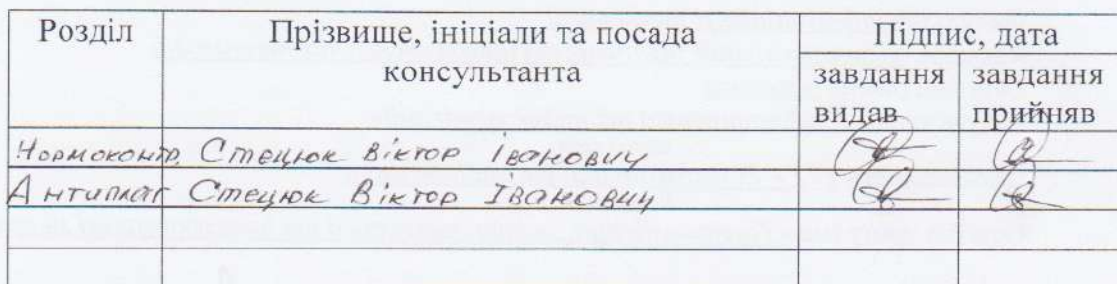 Розділ Прізвище, ініціали та посада консультанта Підпис, дата
завдання видав завдання прийняв
Нормоконтр. Стецюк Віктор Іванович
Антиплаг Стецюк Віктор Іванович